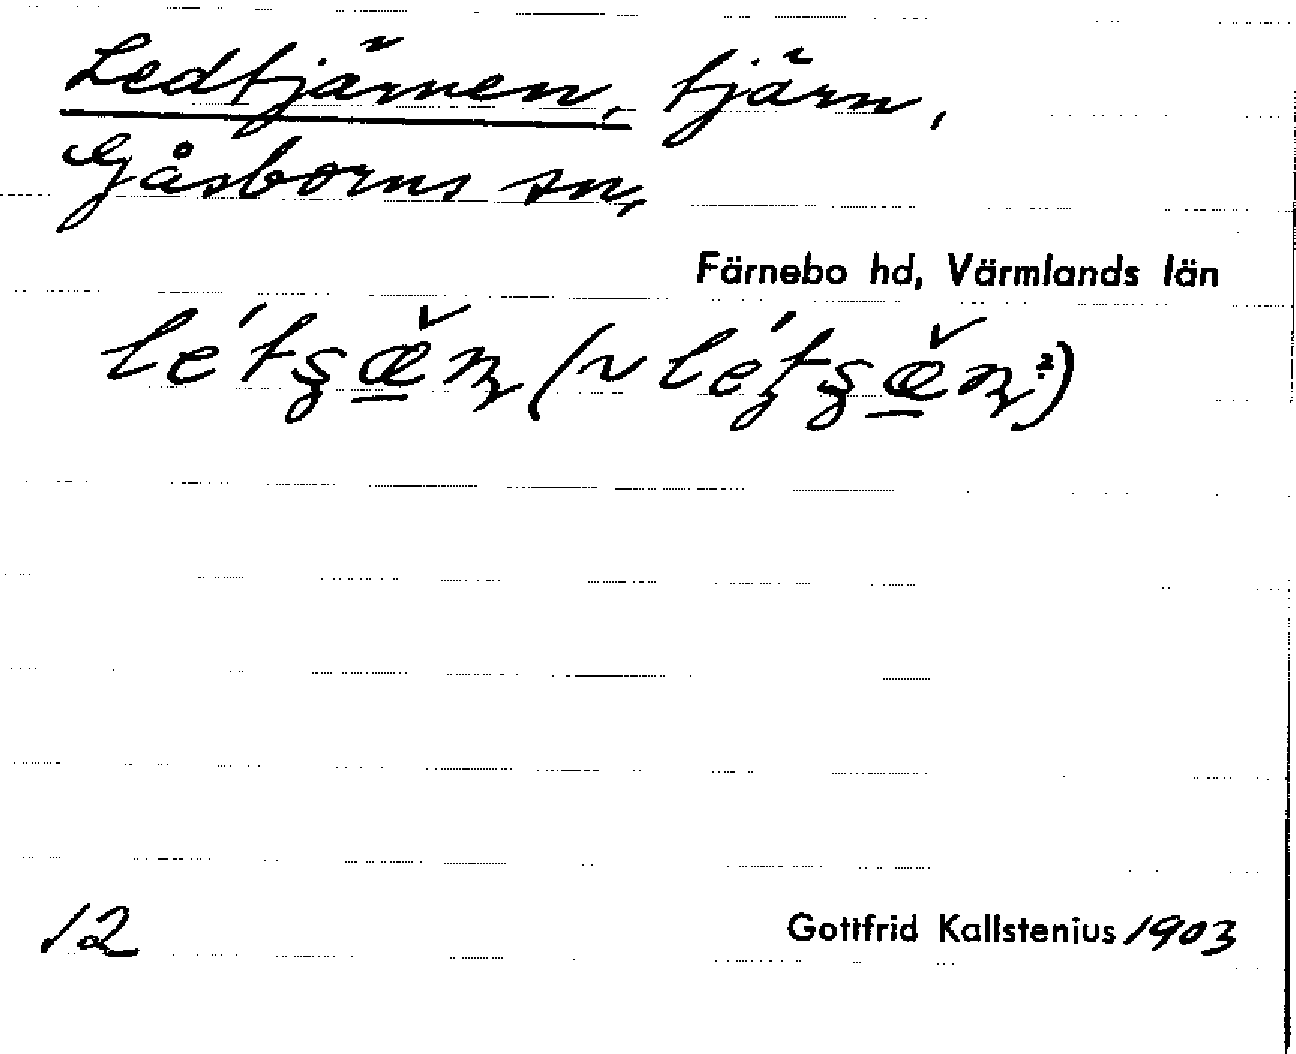 Ledtjärnen, tjärn,
Gåsborns sn,
Färnebo hd, Värmlands län
12
Gottfrid Kallstenius 1903